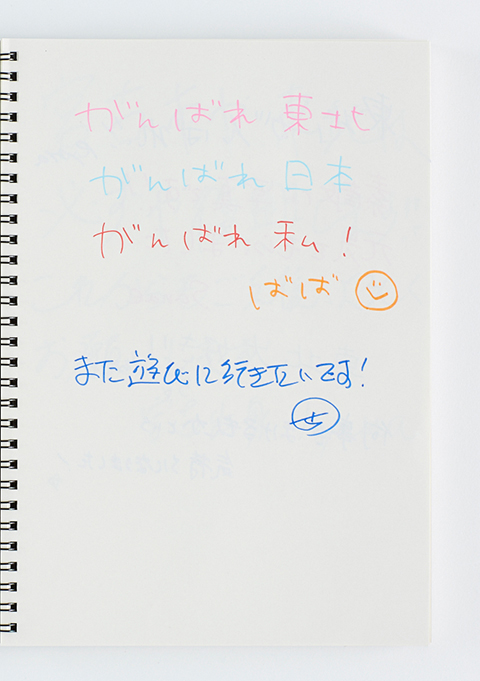 がんばれ 東北
がんばれ 日本
がんばれ 私!
ばば
また遊びに行きたいです!
せ